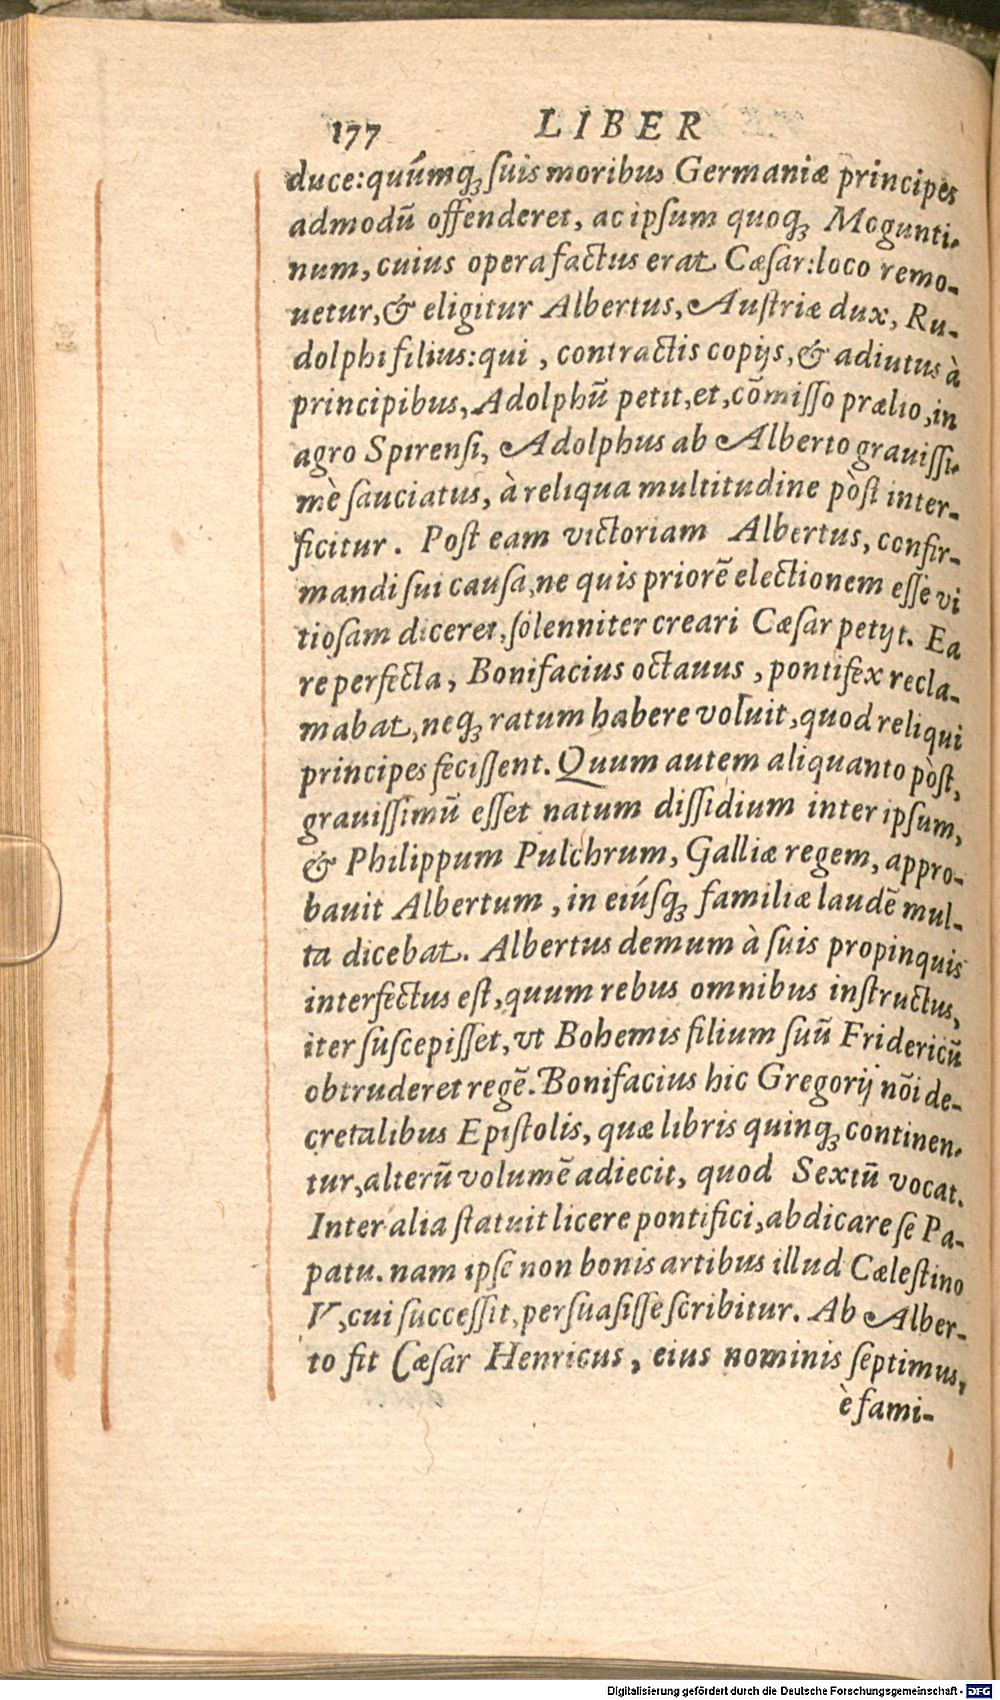 177 LIBER
duce:quúmq; ſuis moribus Germaniæ principes
admodū offenderet, ac ipſum quoq; Mogunti-
num, cuius opera factus erat Cæſar: loco remo-
uetur, & eligitur Albertus, Auſtriæ dux, Ru-
dolphi filius: qui, contractis copijs, & adiutus à
principibus, Adolphū petit, et, cōmiſſo prælio, in
agro Spirenſi, Adolphus ab Alberto grauiſſi-
mè ſauciatus, à reliqua multitudine pòſt inter-
ficitur. Poſt eam victoriam Albertus, confir-
mandi ſui cauſa, ne quis priorē electionem eſſe vi
tioſam diceret, ſolenniter creari Cæſar petijt. Ea
re perfecta, Bonifacius octauus, pontifex recla-
mabat, neq; ratum habere voluit, quod reliqui
principes feciſſent. Quum autem aliquanto pòſt,
grauiſſimū eſſet natum diſſidium inter ipſum,
& Philippum Pulchrum, Galliæ regem, appro-
bauit Albertum, in eiúſq; familiæ laudē mul-
ta dicebat. Albertus demum à ſuis propinquis
interfectus eſt, quum rebus omnibus inſtructus,
iter ſuſcepiſſet, vt Bohemis filium ſuū Fridericū
obtruderet regē. Bonifacius hic Gregorij nōi de-
cretalibus Epiſtolis, quæ libris quinq; continen-
tur, alterū volumē adiecit, quod Sextū vocat.
Inter alia ſtatuit licere pontifici, abdicare ſe Pa-
patu. nam ipſe non bonis artibus illud Cæleſtino
V, cui ſucceſſit, perſuaſiſſe ſcribitur. Ab Alber-
to fit Cæſar Henricus, eius nominis ſeptimus,
è fami-
Digitalisierung gefördert durch die Deutsche Forschungsgemeinschaft - DFG